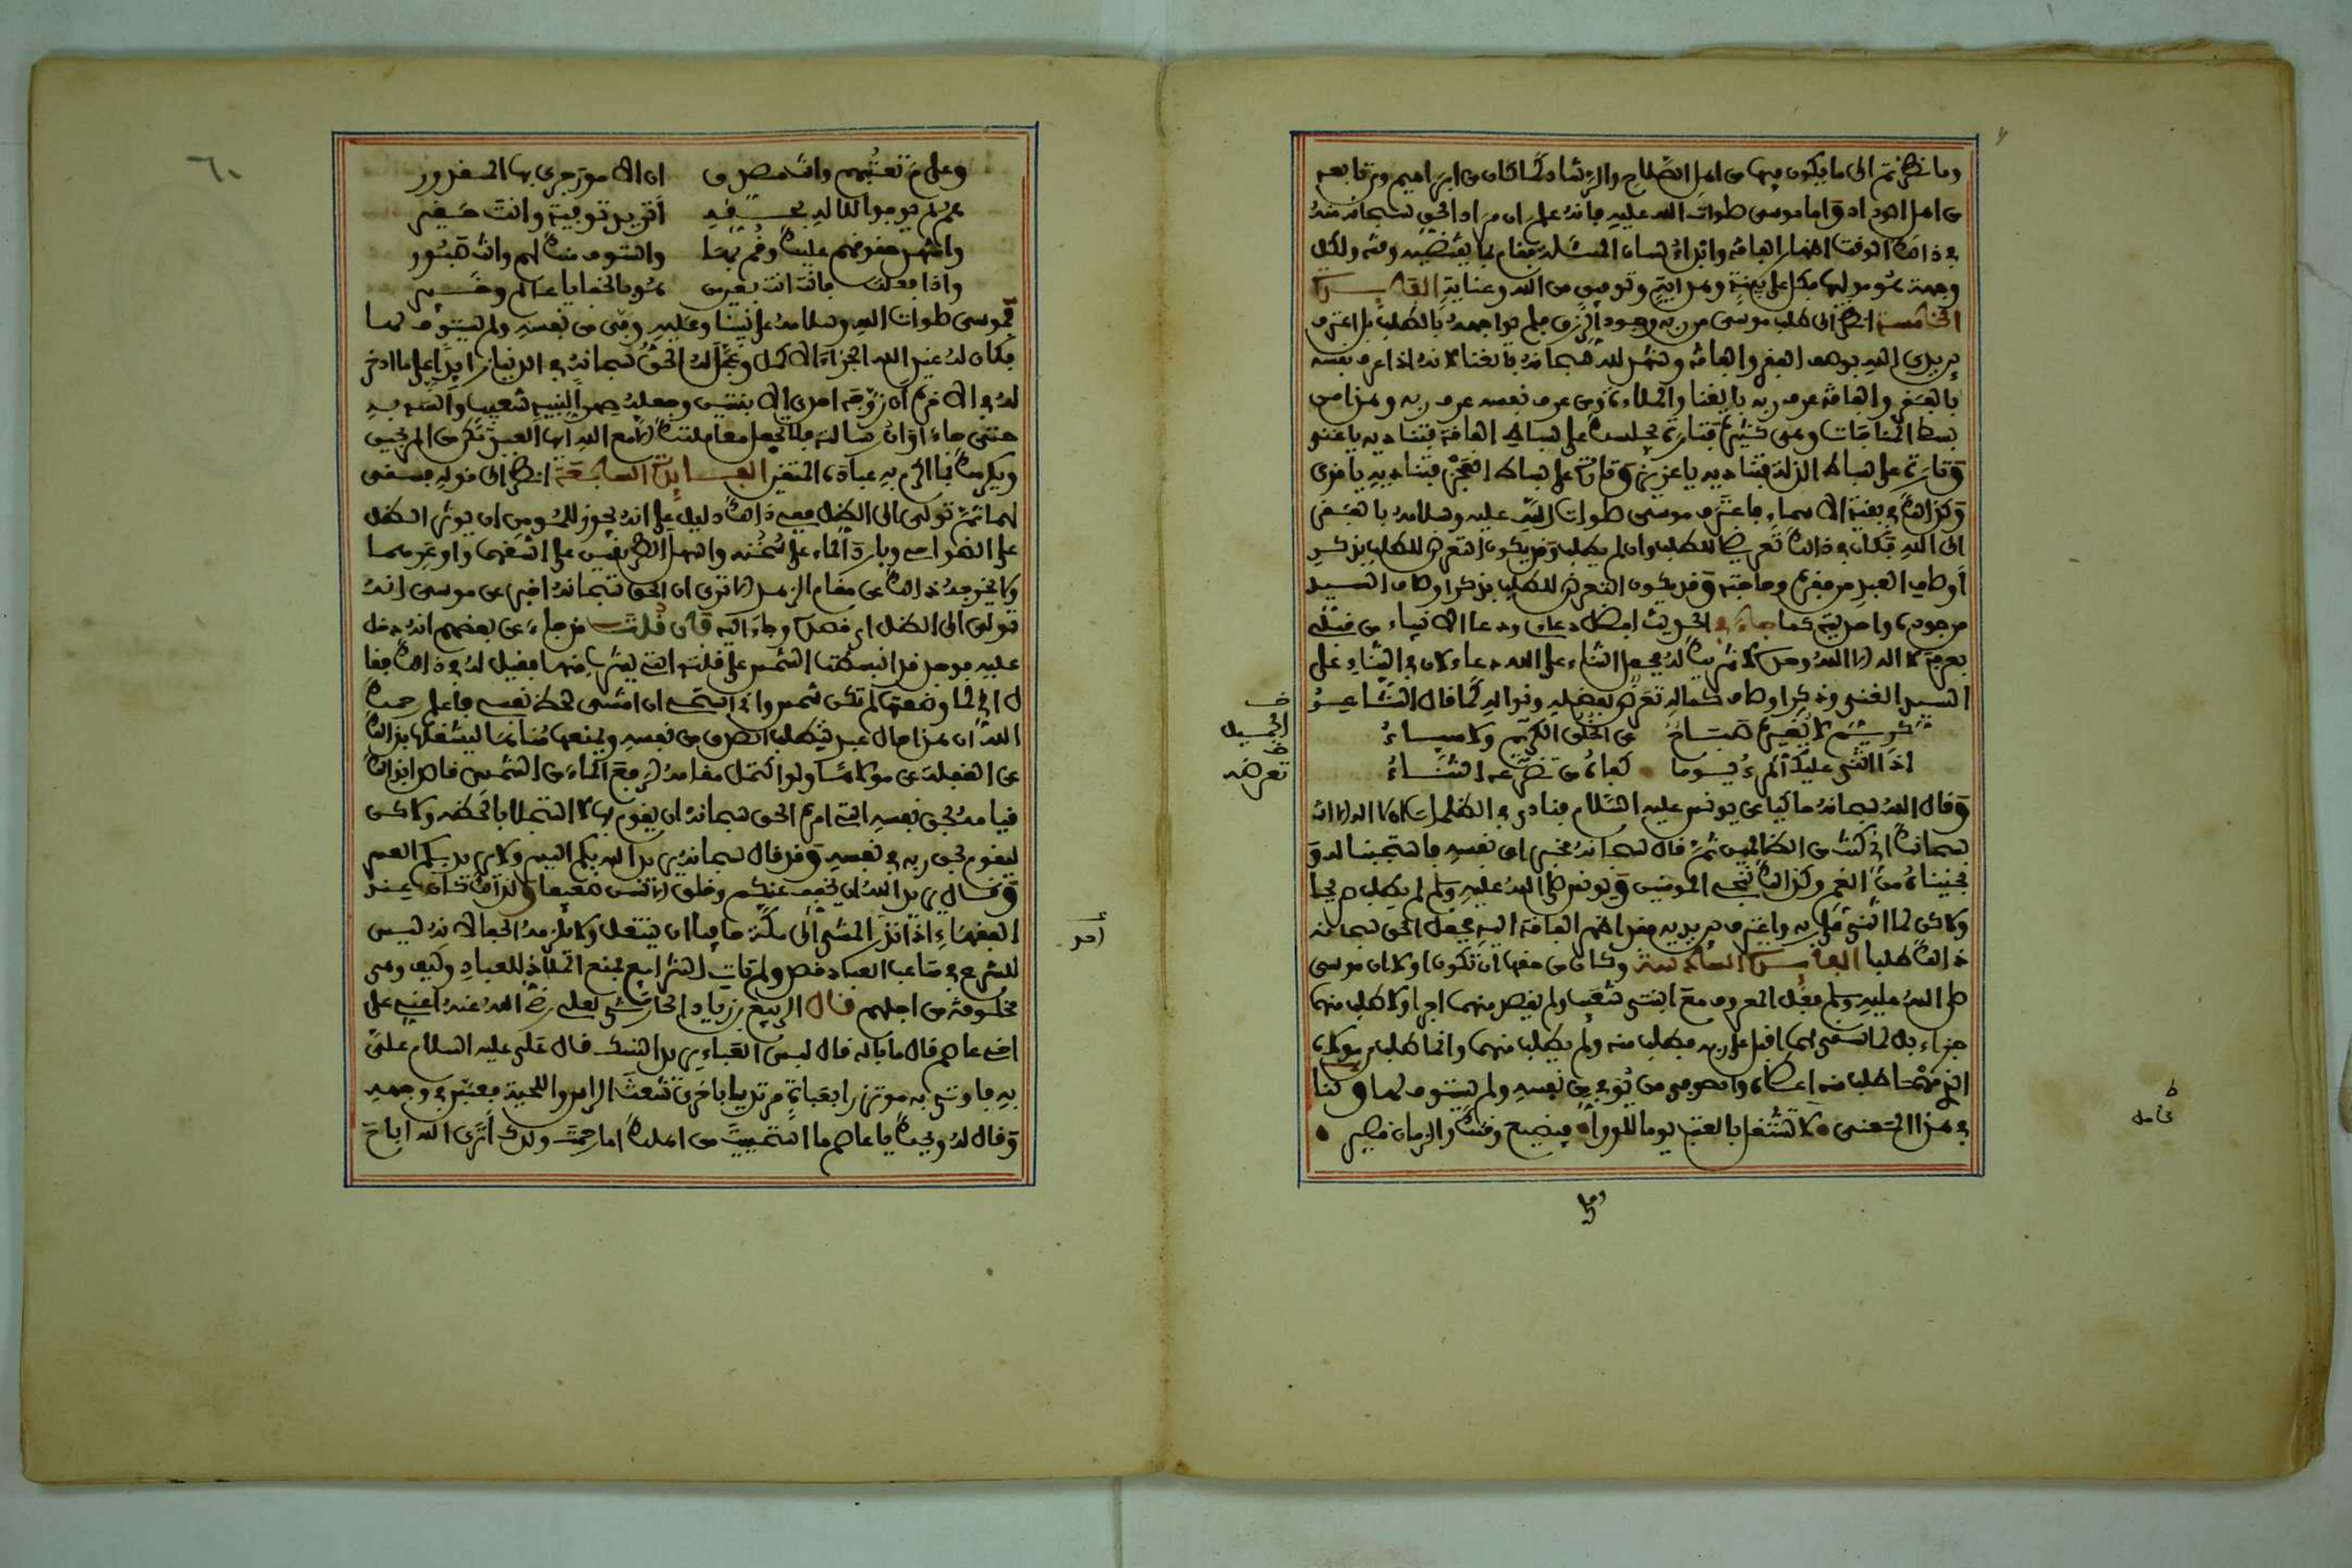 وما نظرتم الى ما يكون فيها من اهل الصلاح والرشاد كما كان من ابراهيم ومن تابعهم
من اهل الوداد واما موسى صلوات الله عليه فانه علم ان مراد الحق سبحانه منه
في ذلك الوقت اظهار الفاقة وابراء لسان المسئلة فقام بما يقتضيه وقته ولكل
وجهة هو موليها فكل على بينة وهداية وتوفيق من الله وعناية الفايدة
الخامسة انظر الى طلب موسى من ربه وجود الرزق فلم يواجهه بالطلب بل اعترف
بين يدي الله بوصف الفقر والفاقة وشهد لله سبحانه بالغنا لانه اذا عرف نفسه
بالفقر والفاقة عرف ربه بالغنا والملاء ومن عرف نفسه عرف ربه وهذا من
بسط المناجات وهي كثيرة فتارة يجلسك على بساط الفاقة فتناديه يا غني
وتارة على بساط الذلة فتناديه يا عزيز وتارة على بساط العجز فتناديه يا قوي
وكذلك في بقية الاسماء فاعترف موسى صلوات الله عليه وسلامه بالفقر
الى الله فكان في ذلك تعريضا للطلب وان لم يطلب وقد يكون التعرض للطلب بذكر
اوصاف العبد من فقره وحاجته وقد يكون التعرض للطلب بذكر اوصاف السيد
من جوده واحديته كما جاء في الحديث افضل دعاءي ودعاء الانبياء من قبلي
بعرفة لا اله الا الله وحده لا شريك له فجعل الثناء على الله دعاء لان في الثناء على
السيد الغني وذكر اوصاف كماله تعرض لفضله ونواله كما قال الشاعر
كريم لا يغيره صباح عن الخلق الكريم ولا مساء
اذا اثنى عليك المرء يوما كفاه من تعرضه الثناء
ف
الجميل
ف
تعرضه
وقال الله سبحانه حاكيا عن يونس عليه السلام فنادى في الظلمات ان لا اله الا انت
سبحانك اني كنت من الظالمين ثم قال سبحانه مخبرا عن نفسه فاستجبنا له و
نجيناه من الغم وكذلك ننجي المومنين ويونس صلى الله عليه وسلم لم يطلب صريحا
ولاكن لما اثنى على ربه واعترف بين يديه فقد اظهر الفاقة اليه فجعل الحق سبحانه
ذلك طلبا الفايدة السادسة وكان من حقها ان تكون اولا ان موسى
صلى الله عليه وسلم فعل المعروف مع ابنتي شعيب ولم يقصد منهما اجرا ولا طلب منهما
جزاء بل لما سقى لهما اقبل على ربه فطلب منه ولم يطلب منهما وانما طلب من مولاه
الذي مهما طلب منه اعطاه والصوفي من يوفي من نفسه ولم يستوف لها ولنا
في هذا المعنى لا تشتغل بالعتب يوما للورا فيضيع وقتك والزمان قصير
ط
كامل
وعلى م تعتبهم وانت مصدق ان الامور جرى بها المقدور
هم لم يوفوا للاله بحقه اتريد توفية وانت حقير
واشهد حقوقهم عليك وقم بها واستوف منك لهم وانت صبور
واذا فعلت فانت انت بعين من هو بالخفايا عالم وخبير
فموسى صلوات الله وسلامه على نبينا وعليه وفى من نفسه ولم يستوف لها
فكان له عند الله الجزاء الاكمل وعجل له الحق سبحانه في الدنيا زايدا على ما ادخر
له في الاخرة ان زوجه احدى الابنتين وجعله صهرا لنبيه شعيب وانسه به
حتى جاء اوان رسالته فلا تجعل معاملتك الا مع الله ايها العبد تكن من المربحين
ويكرمك بما اكرم به عباده المتقين الفايدة السابعة انظر الى قوله فسقى
لهما ثم تولى الى الظل ففي ذلك دليل على انه يجوز للمومن ان يوثر الظل
على الضواحي وبارد الماء على سخنه واسهل الطريقين على اشقهما واوعرهما
ولا يخرجه ذلك عن مقام الزهد الا ترى ان الحق سبحانه اخبر عن موسى انه
تولى الى الظل اي قصده وجاء اليه فان قلت قد جاء عن بعضهم انه دخل
عليه فوجد قد انبسطت الشمس على قلته التي يشرب منها فقيل له في ذلك فقا
ل اني لما وضعتها لم تكن شمس واني استحيي ان امشي لحظ نفسي فاعلم رحمك
الله ان هذا حال عبد يتطلب الصدق من نفسه ويمنعها مناها ليشغلها بذلك
عن الغفلة عن مولاها ولو اكتمل مقامه لرفع الماء من الشمس قاصدا بذلك
قيامه بحق نفسه التي امره الحق سبحانه ان يقوم بها لا استجلابا لحظه ولاكن
ليقوم بحق ربه في نفسه وقد قال سبحانه يريد الله بكم اليسر ولا يريد بكم العسر
وقال يريد الله ان يخفف عنكم وخلق الانسان ضعيفا ولذلك كان عند
الفقهاء اذا نذر المشي الى مكة حافيا ان ينتعل ولا يلزمه الحفا لانه ليس
للشرع في متاعب العباد قصد ولم تات الشرايع بمنع الملاذ للعباد وكيف وهي
مخلوقة من اجلهم قال الربيع بن زياد الحارثي لعلي رضي الله عنه اعني على
اخي عاصم قال ما باله قال لبس العباء يريد النسك قال علي عليه السلام علي
به فاوتي به موتزرا بعباءة مرتديا باخرى شعث الراس واللحية فعبس في وجهه
وقال له ويحك يا عاصم اما استحييت من اهلك اما رحمت ولدك اترى الله اباح
امر
٦٠